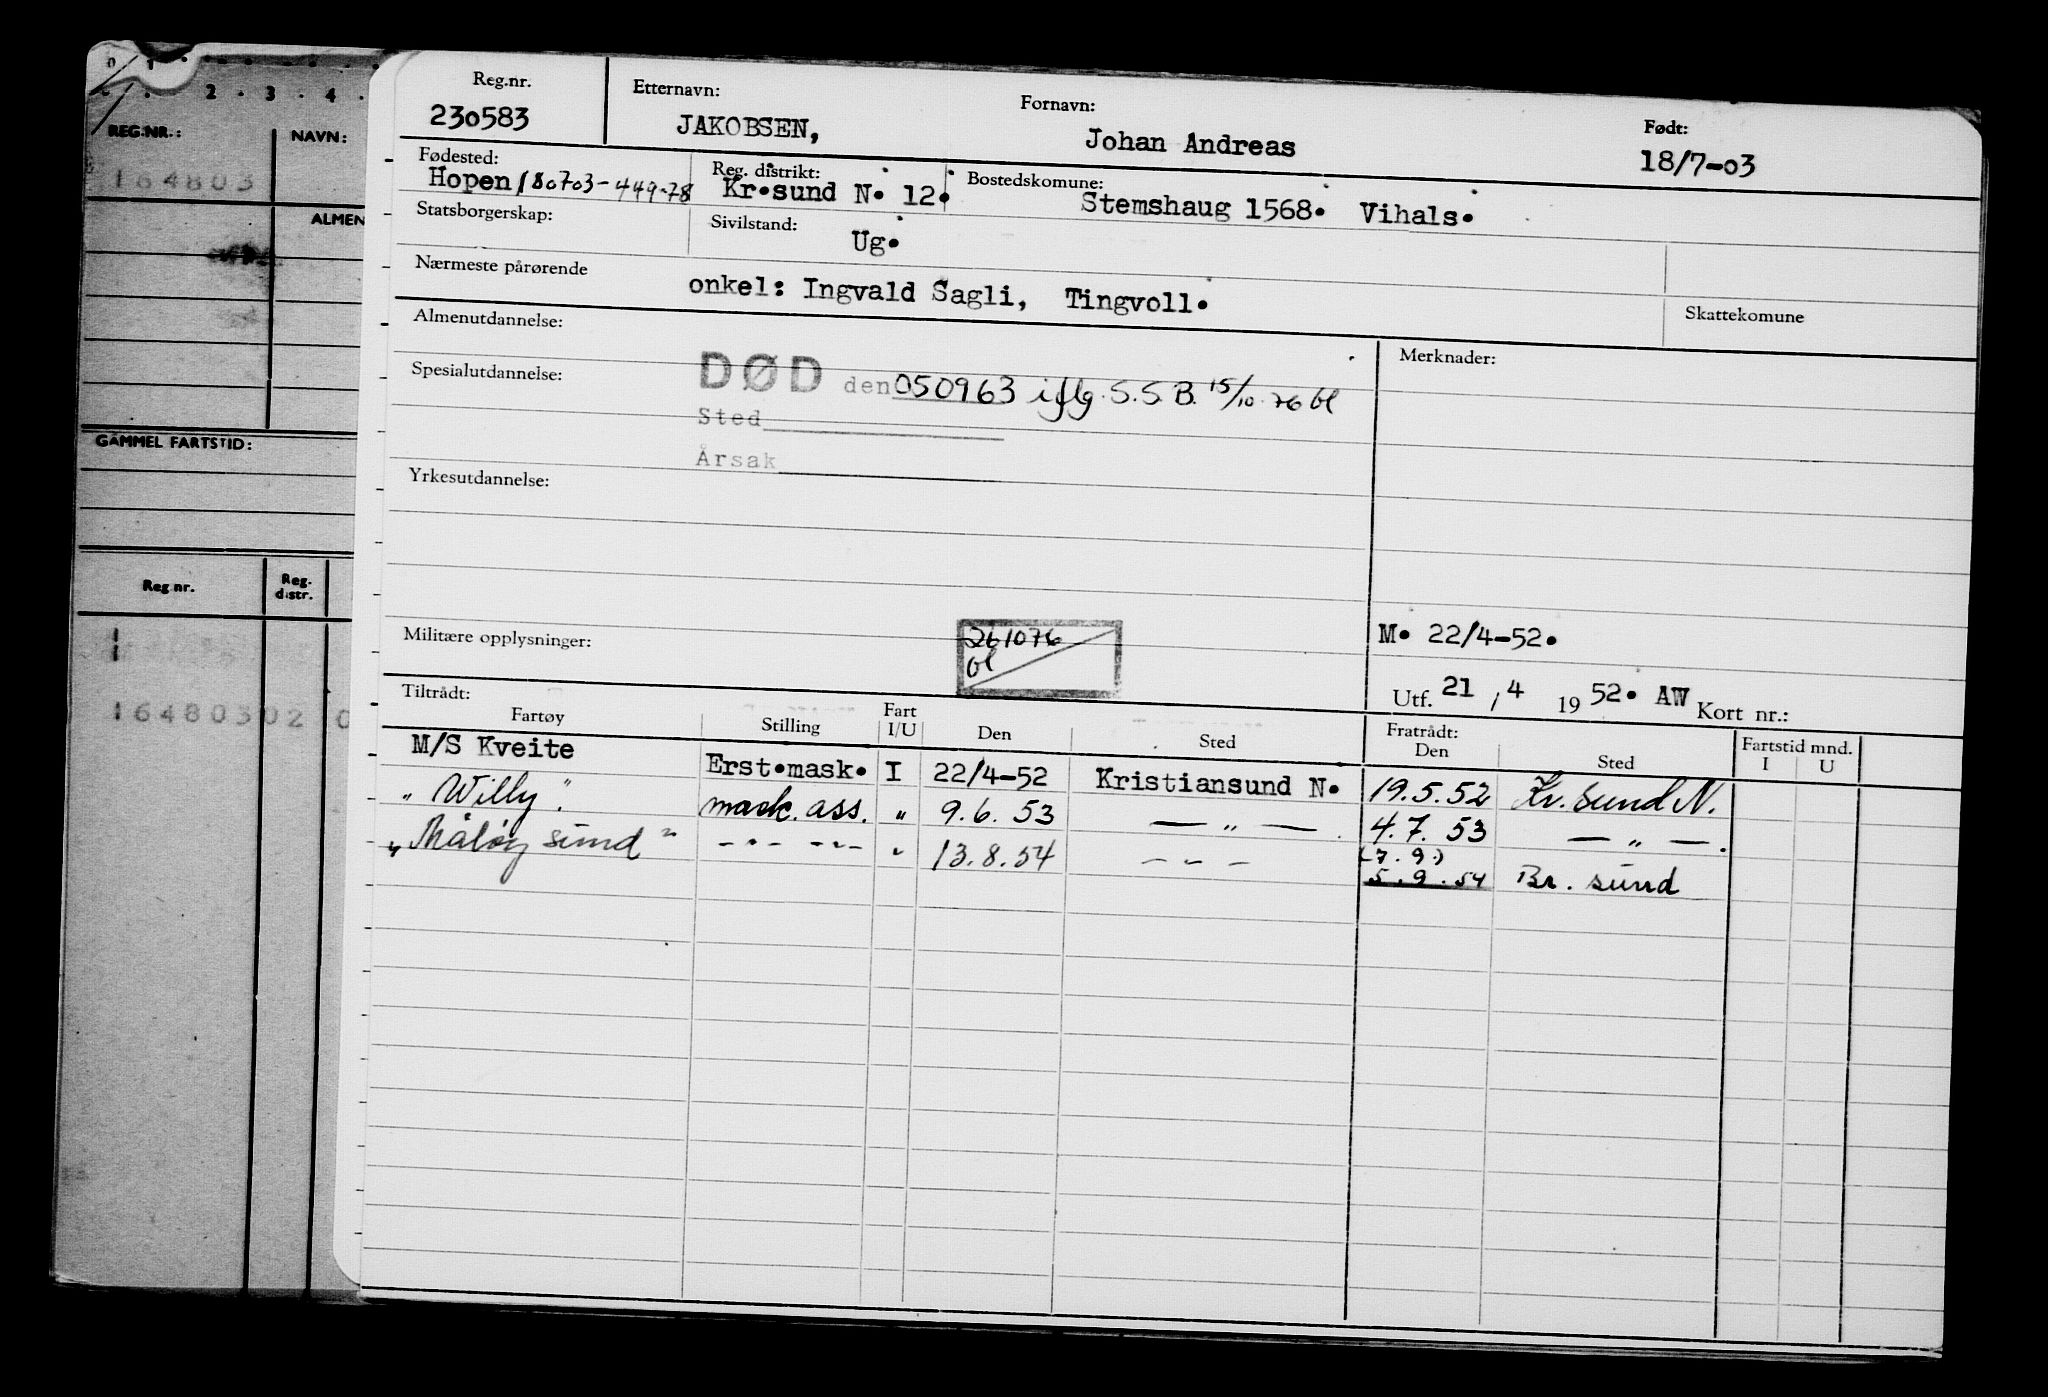 0 1
2 . 3 . 4 .
REG.NR.: NAVN:
164803
ALMEN
GAMMEL FARTSTID:
Reg.nr. Reg. distr.
16480302 0
Reg.nr. Etternavn: Fornavn: Født:
230583 JAKOBSEN, Johan Andreas 18/7-03
Fødested: Reg. distrikt: Bostedskomune:
Hopen 180703-449-78 Kr.sund N. 12. Stemshaug 1568. Vihals.
Statsborgerskap: Sivilstand: Ug.
Nærmeste pårørende onkel: Ingvald Sagli, Tingvoll.
Skattekomune
Almenutdannelse: Merknader:
Spesialutdannelse: DØD den 050963 iflg. S.S.B. 15/10-76 bl
Sted
Årsak
Yrkesutdannelse:
Militære opplysninger: 261076 M. 22/4-52.
bl
Utf. 21 / 4 1952. AW Kort nr.:
Tiltrådt: Fratrådt:
Fartøy Stilling Fart I/U Den Sted Den Sted Fartstid mnd. I U
M/S Kveite Erst.mask. I 22/4-52 Kristiansund N. 19.5.52 Kr.sund N.
" Willy". mask. ass. " 9.6.53 — " — . 4.7.53 — " — .
" Måløy sund" - " - - " - " 13.8.54 - " - (7.9.)
5.9.54 Br. sund